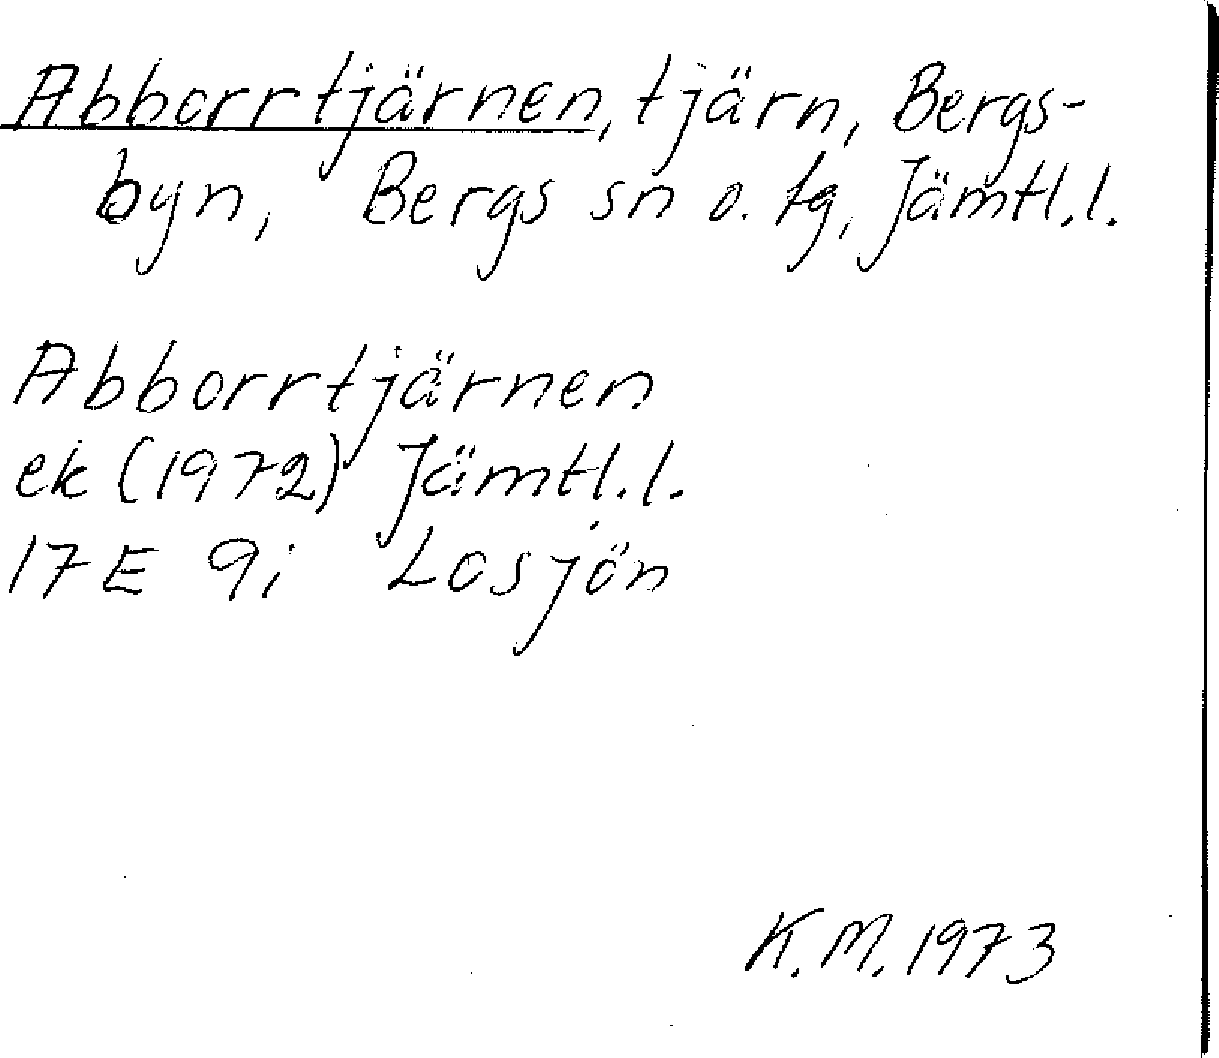 Abborrtjärnen, tjärn, Bergs-
byn, Bergs sn o. tg, Jämtl. l.
Abborrtjärnen
ek (1972) Jämtl. l.
17E 9i Losjön
K. M. 1973